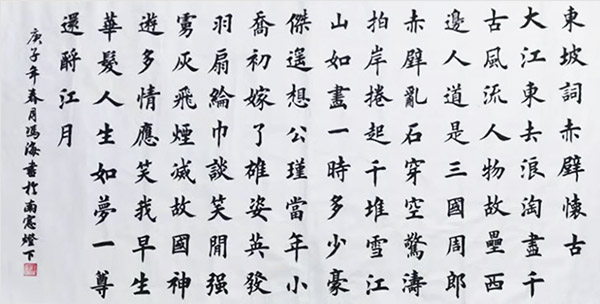 東坡詞赤壁懷古
大江東去浪淘盡千
古風流人物故壘西
邊人道是三國周郎
赤壁亂石穿空驚濤
拍岸捲起千堆雪江
山如畫一時多少豪
傑遙想公瑾當年小
喬初嫁了雄姿英發
羽扇綸巾談笑閒强
虜灰飛煙滅故國神
遊多情應笑我早生
華髮人生如夢一尊
還酹江月
庚子年春月馮海書於南窓燈下